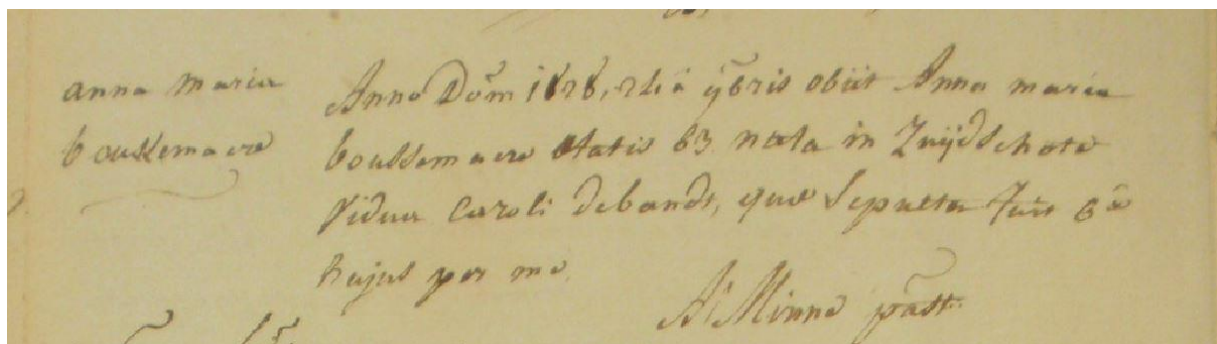 anna maria
boussemaere
Anno Dom 1828, 2tiâ 7bris obiit Anna maria
boussemaere etatis 63 nata in Zuijdschote
Vidua Caroli debandt, quæ Sepulta fuit 6a
hujus per me
Minne past.